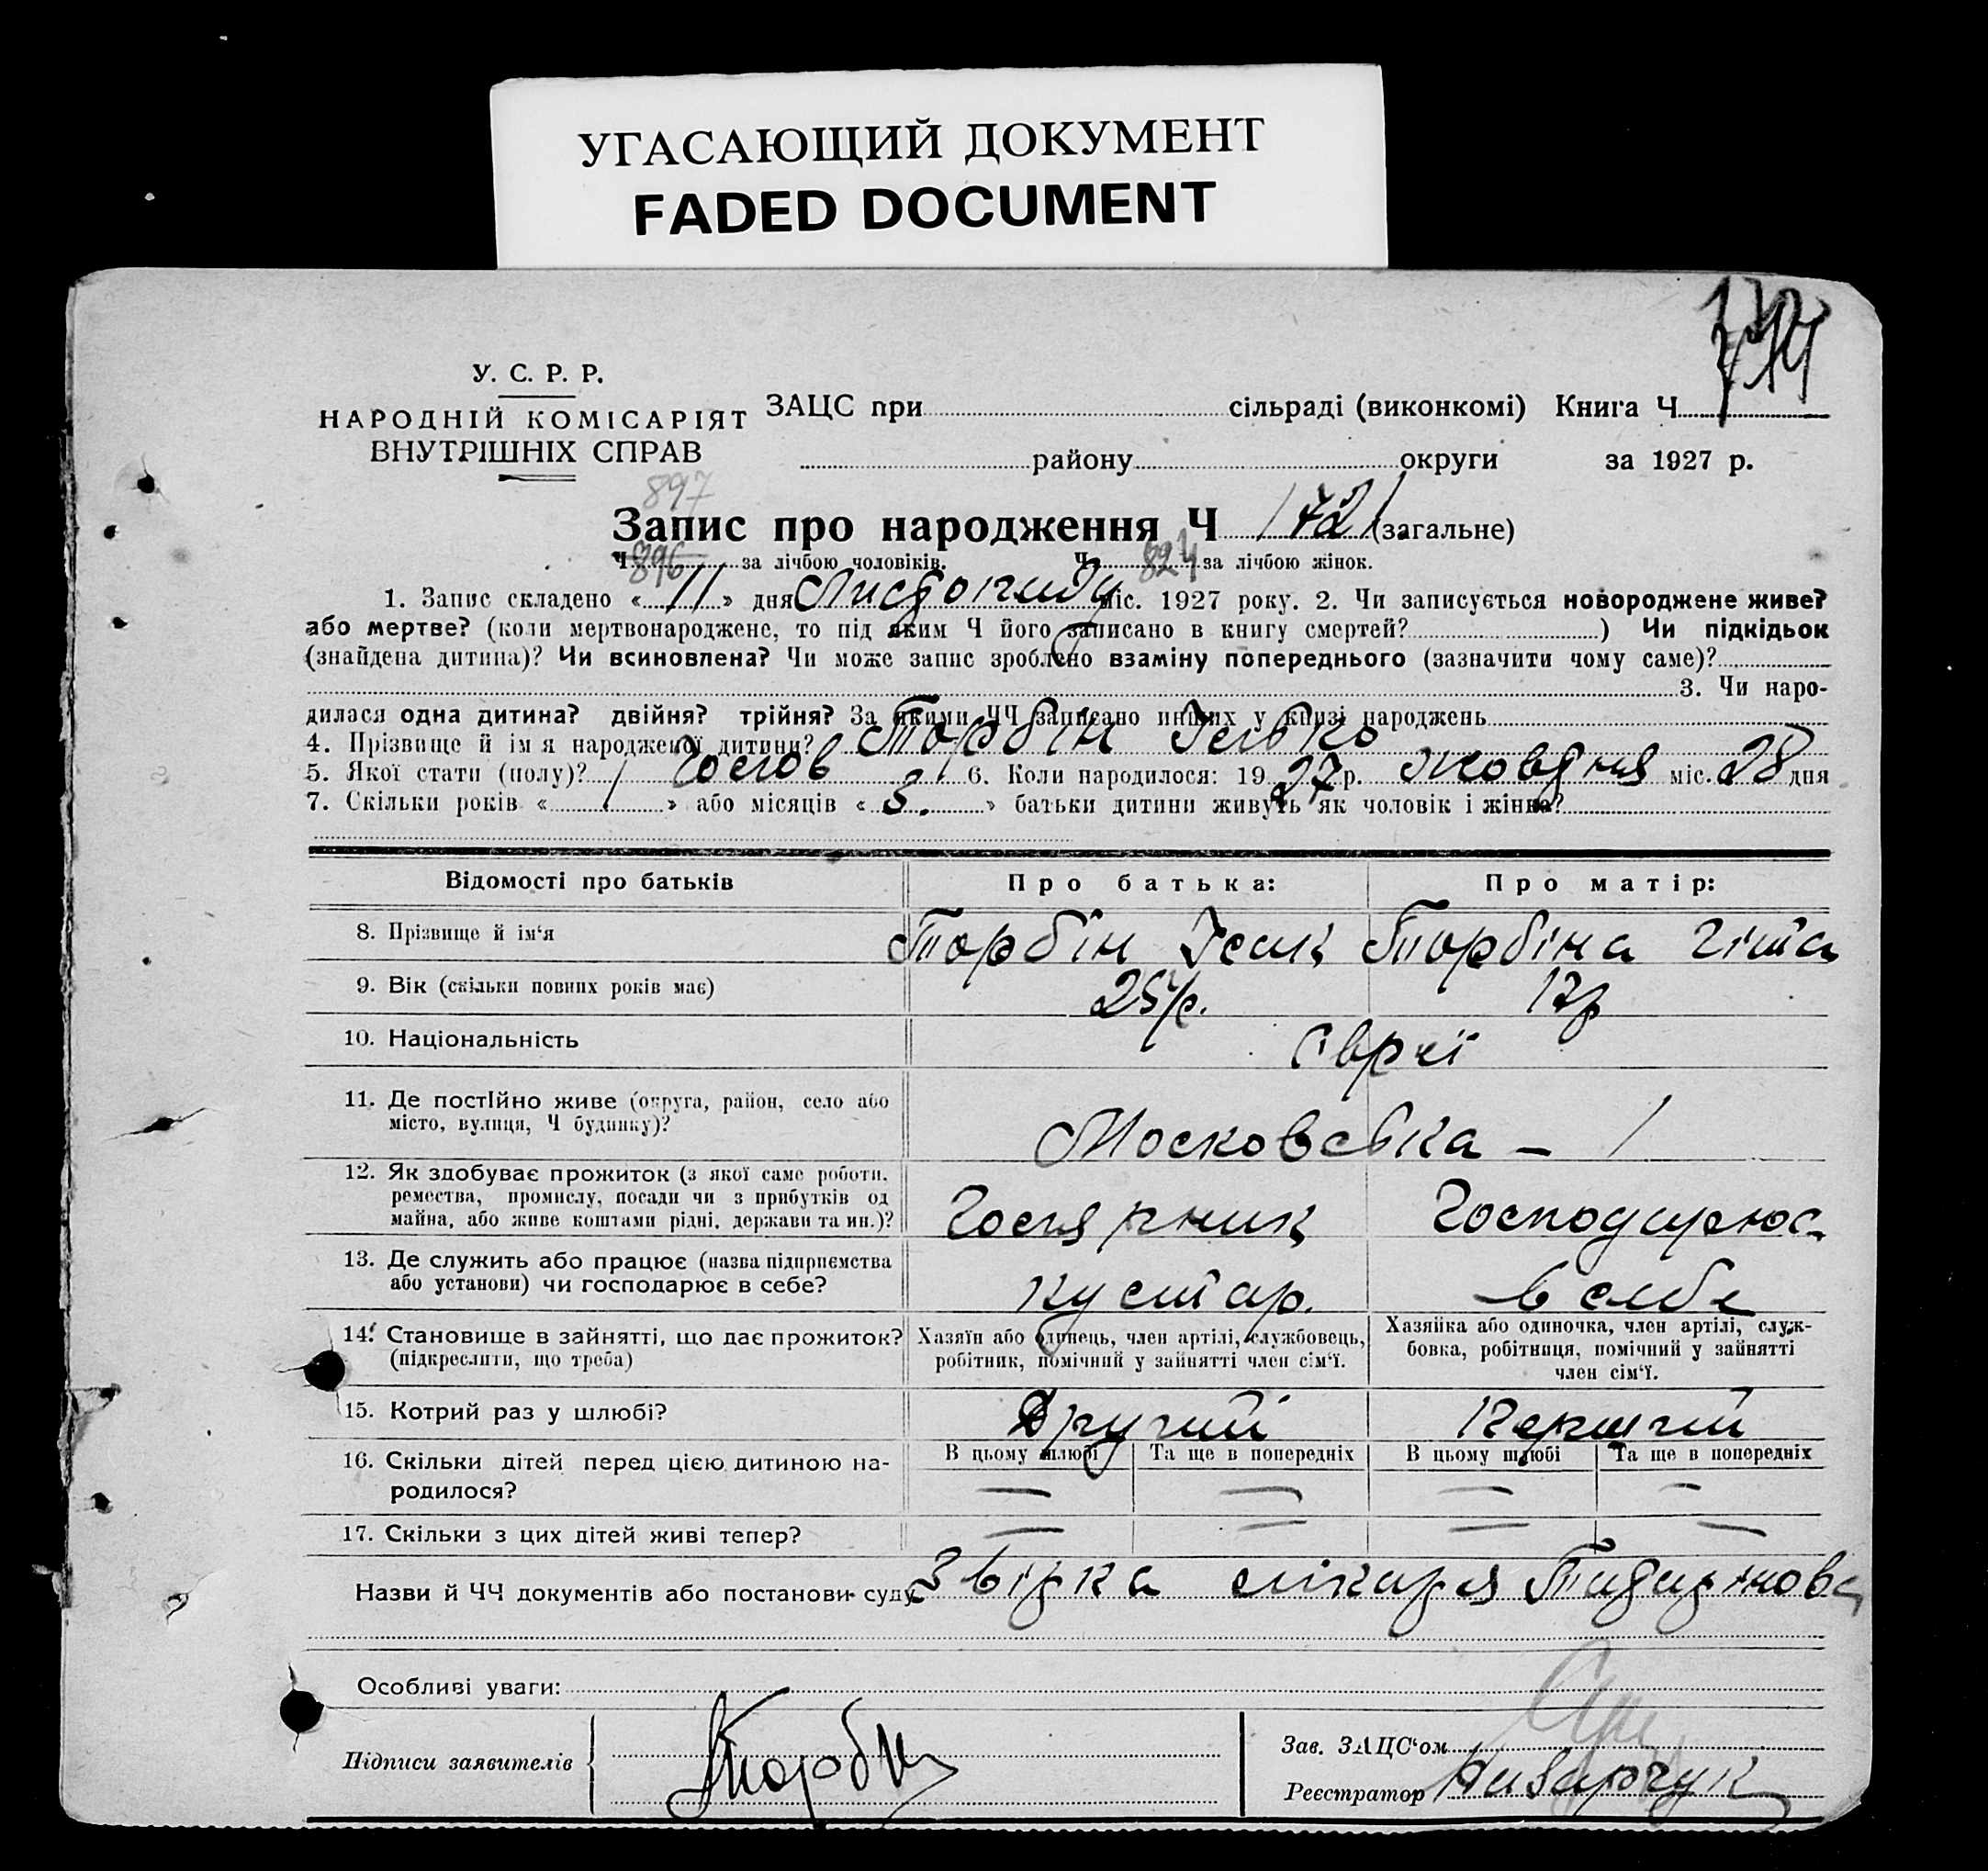 УГАСАЮЩИЙ ДОКУМЕНТ
FADED DOCUMENT
У. С. Р. Р.
НАРОДНІЙ КОМІСАРІЯТ
ВНУТРІШНІХ СПРАВ
ЗАЦС при сільраді (виконкомі) Книга Ч
району округи за 1927 р.
897
Запис про народження Ч 1721 (загальне)
Ч 896 за лічбою чоловіків. Ч 824 за лічбою жінок.
1. Запис складено « 11 » дня Листопаду міс. 1927 року. 2. Чи записується новороджене живе?
або мертве? (коли мертвонароджене, то під яким Ч його записано в книгу смертей? ) Чи підкідьок
(знайдена дитина)? Чи всиновлена? Чи може запис зроблено взаміну попереднього (зазначити чому саме)?
3. Чи наро-
дилася одна дитина? двійня? трійня? За якими ЧЧ записано инших у книзі народжень
4. Прізвище й ім я народженої дитини? Торбін
5. Якої стати (полу)? 6. Коли народилося: 19 27 р. жовтня міс. 28 дня
7. Скільки років « » або місяців « » батьки дитини живуть як чоловік і жінка?
Відомості про батьків Про батька: Про матір:
8. Прізвище й ім‘я Торбін Ісак Торбіна Гіта
9. Вік (скільки повних років має) 25 р. 17 р
10. Національність Євреї
11. Де постійно живе (округа, район, село або
місто, вулиця, Ч будинку)? Московська – 1
12. Як здобуває прожиток (з якої саме роботи,
ремества, промислу, посади чи з прибутків од
майна, або живе коштами рідні, держави та ин.)?
13. Де служить або працює (назва підприємства
або установи) чи господарює в себе? кустар. в себе
14. Становище в зайнятті, що дає прожиток?
(підкреслити, що треба)
Хазяїн або одинець, член артілі, службовець,
робітник, помічний у зайнятті член сім‘ї.
Хазяйка або одиночка, член артілі, служ-
бовка, робітниця, помічний у зайнятті
член сім‘ї.
15. Котрий раз у шлюбі? Другий Перший
16. Скільки дітей перед цією дитиною на-
родилося?
В цьому шлюбі Та ще в попередніх В цьому шлюбі Та ще в попередніх
— — — —
17. Скільки з цих дітей живі тепер? — — — —
Назви й ЧЧ документів або постанови суду лікаря
Особливі уваги:
Підписи заявителів Торбін
Зав. ЗАЦС‘ом
Реєстратор